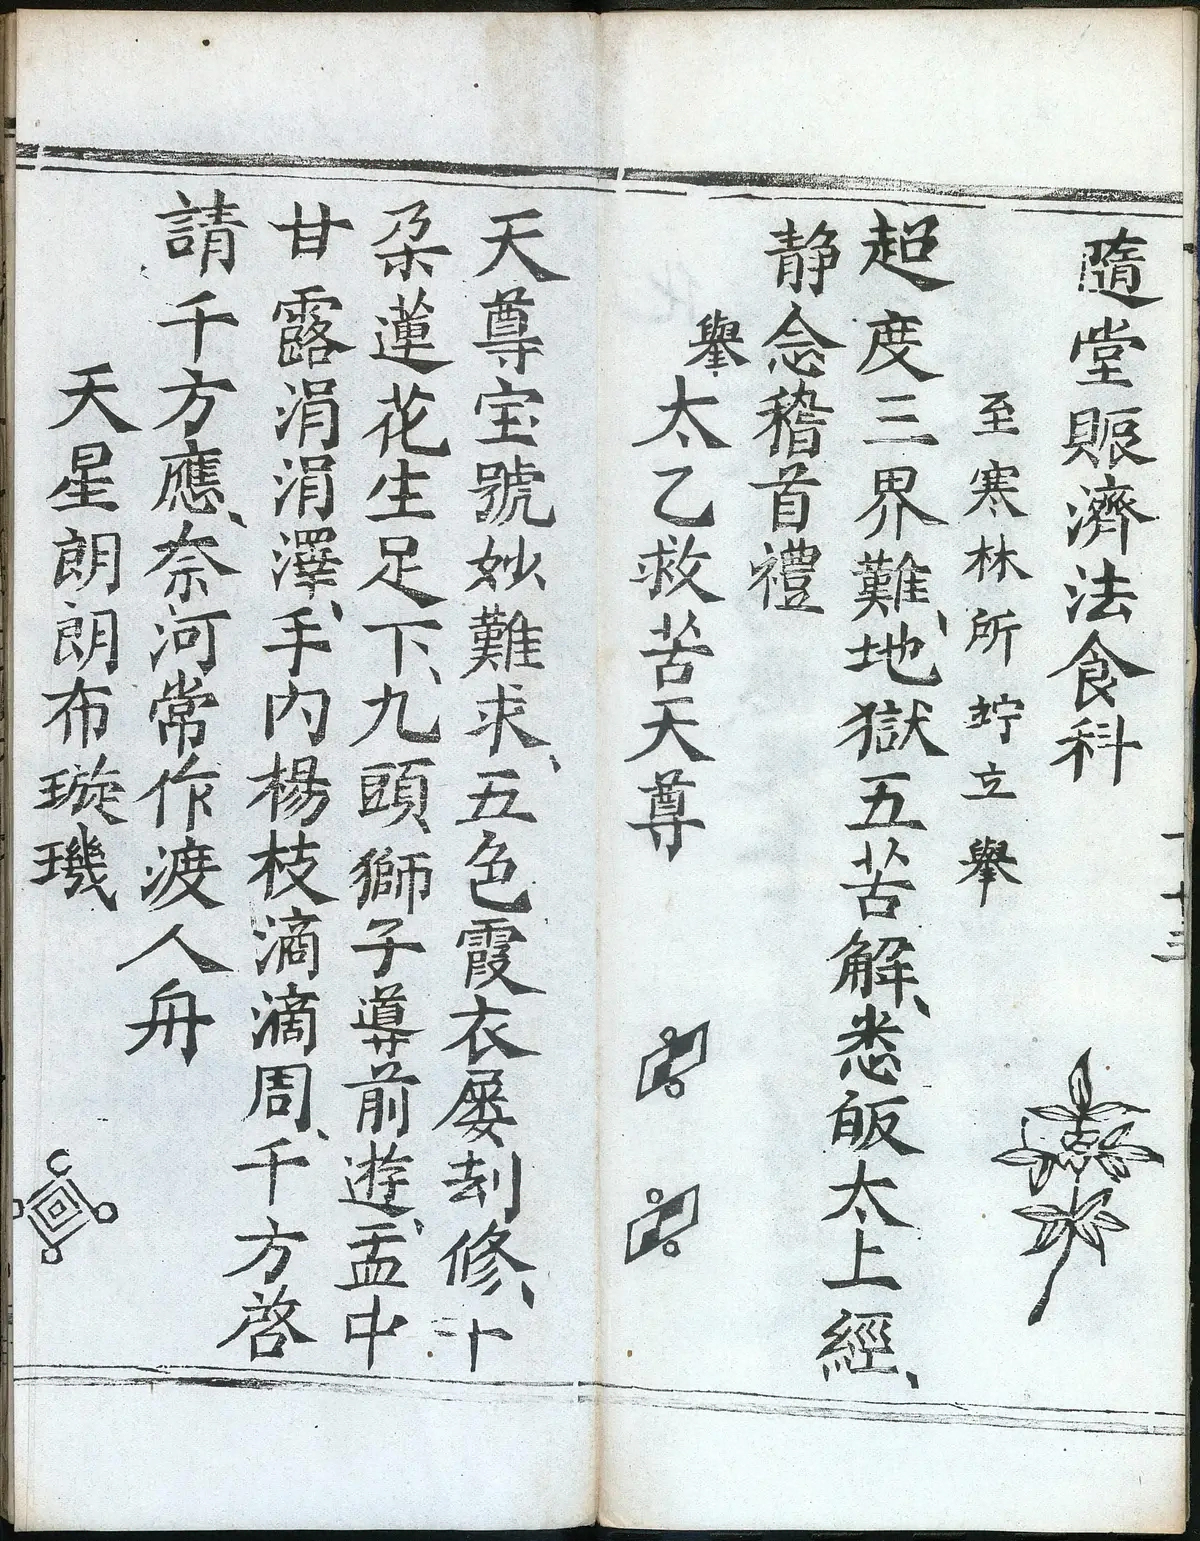 隨堂賑濟法食科
至寒林所竚立舉
超度三界難、地獄五苦解、悉皈太上經、
静念稽首禮
舉太乙救苦天尊
天尊宝號妙難求、五色霞衣屡刦修、十
朶蓮花生足下、九頭獅子導前遊、盂中
甘露涓涓澤、手内楊枝滴滴周、千方啓
請千方應、奈河常作渡人舟
天星朗朗布璇璣